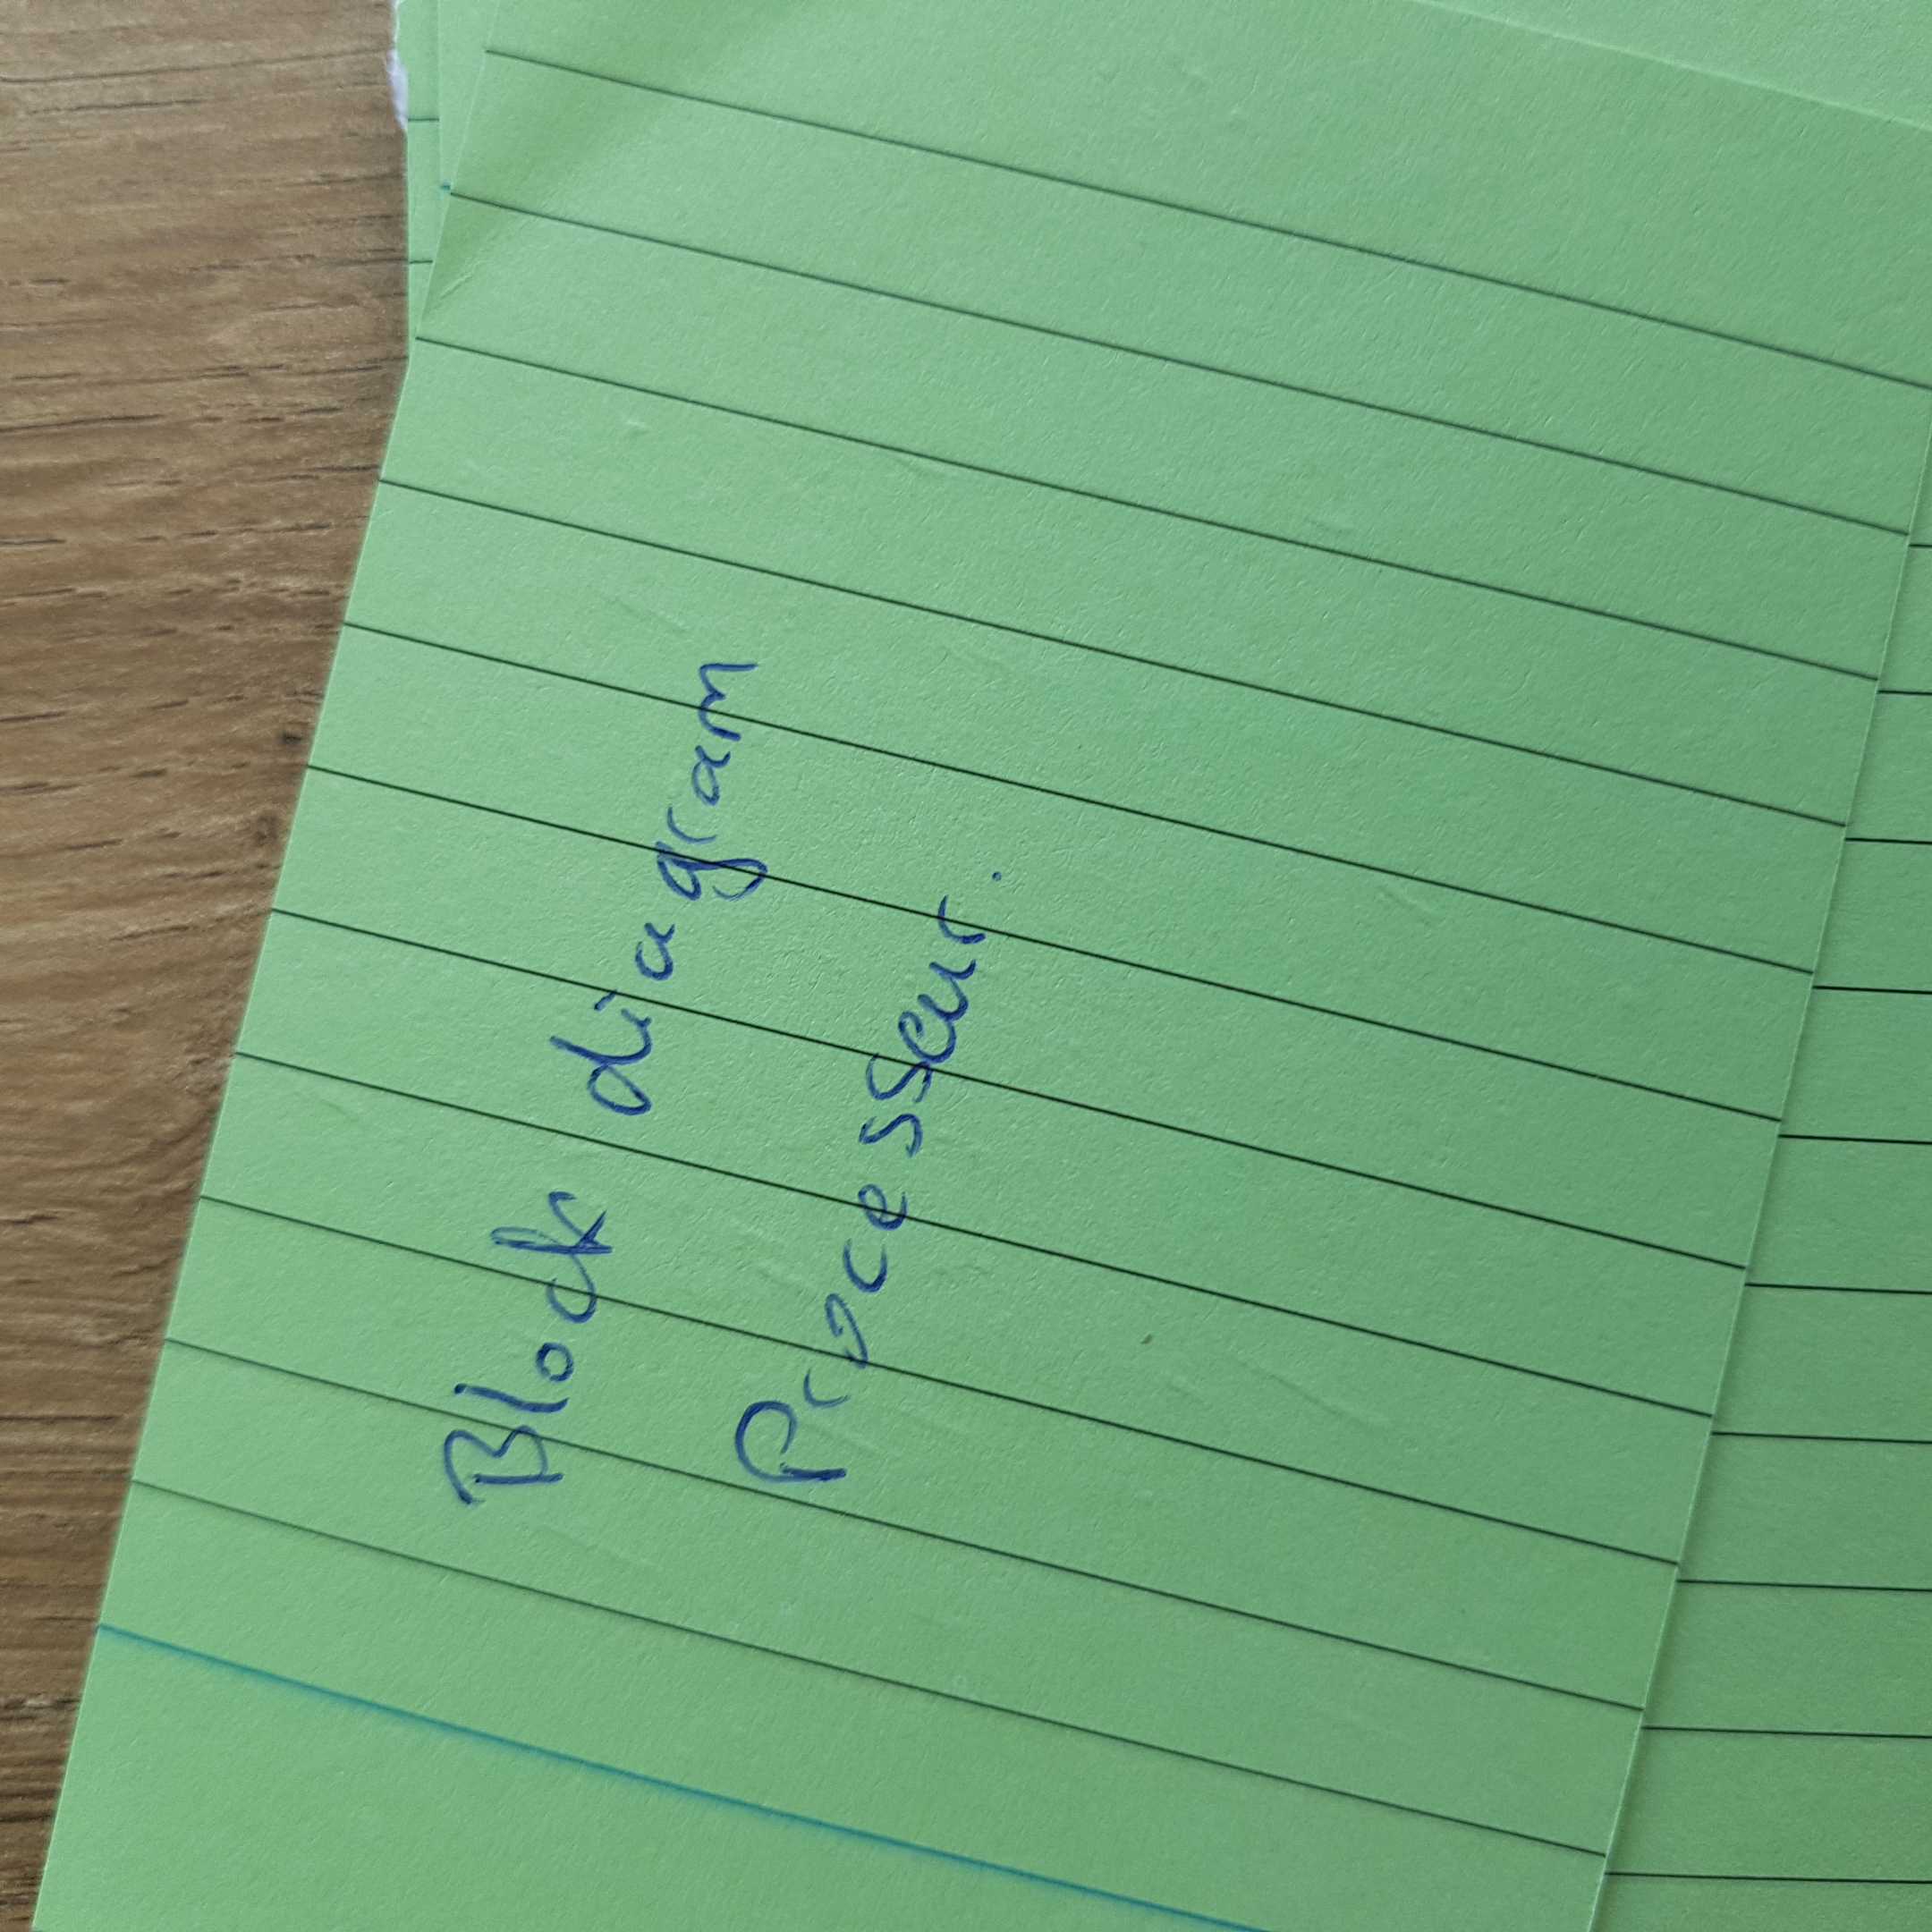 Block diagram
Processeur.